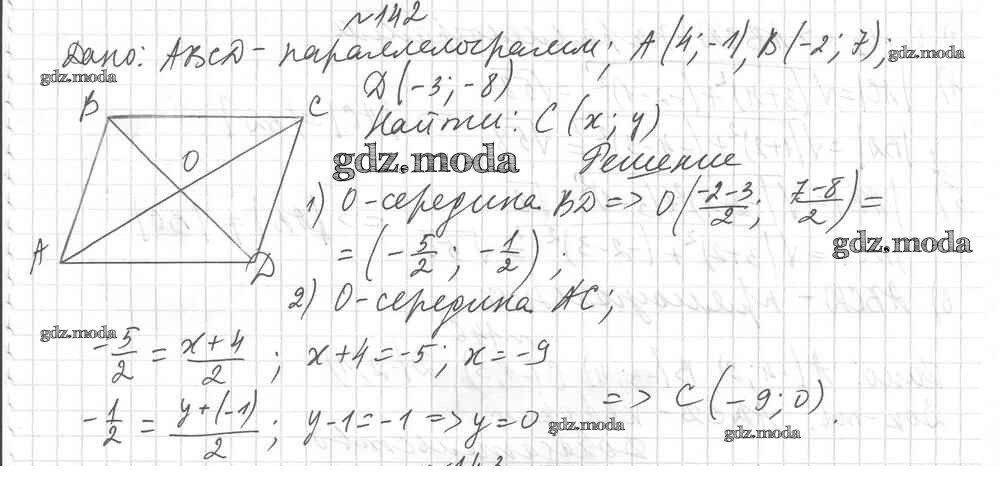 №142
Дано: ABCD - параллелограмм; A(4;-1), B(-2;7);
gdz.moda
gdz.moda
D(-3;-8)
B C
Найти: C(x;y)
O
gdz.moda
Решение
1) O-середина BD => O(-2-3/2; 7-8/2) =
gdz.moda
A D
= (-5/2; -1/2);
2) O-середина AC;
gdz.moda
-5/2 = x+4/2; x+4=-5; x=-9
-1/2 = y+(-1)/2; y-1=-1 => y=0
gdz.moda
=> C(-9;0).
gdz.moda